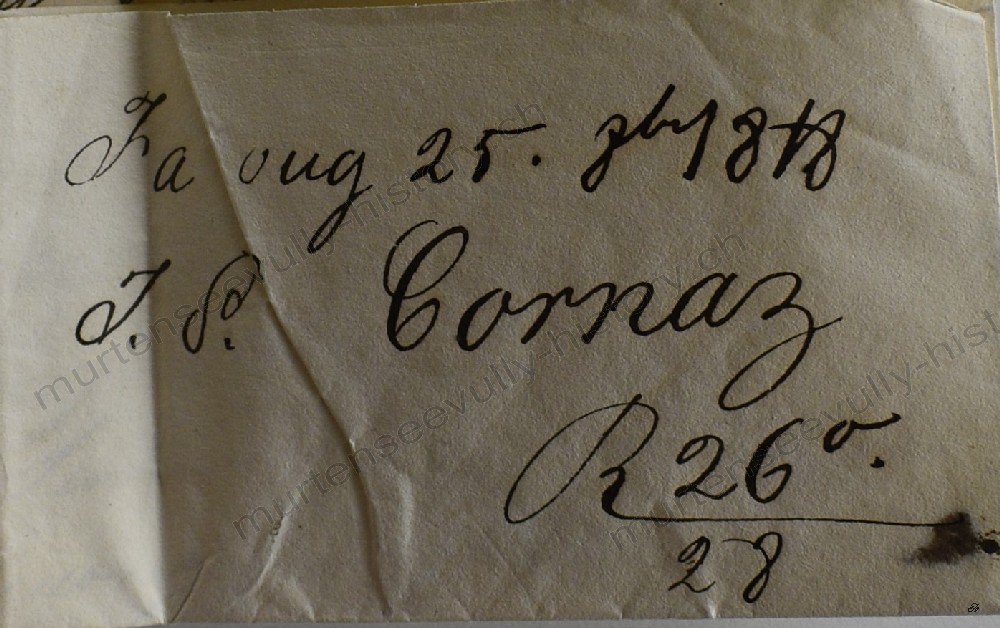 Faoug 25. 8bre 1878
J. P. Cornaz
R 26 o.
28
murtenseevully-histo.ch